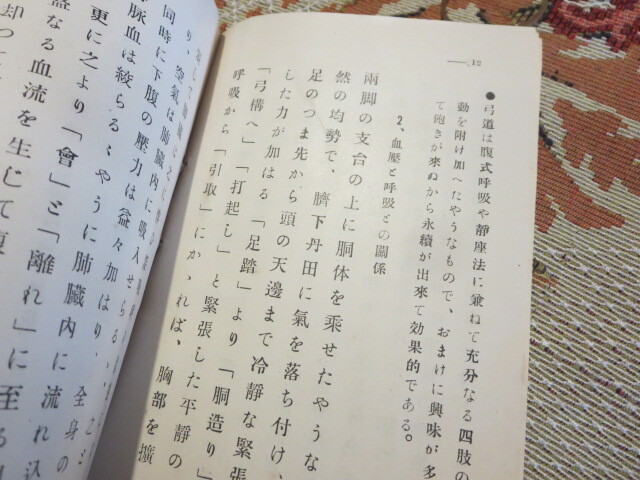 12
●弓道は腹式呼吸や靜座法に兼ねて充分なる四肢の
動を附け加へたやうなもので、おまけに興味が多
て飽きが來ぬから永續が出來て効果的である。
2、血壓と呼吸との關係
兩脚の支台の上に胴体を乘せたやうな
然の均勢で、臍下丹田に氣を落ち付け、
足のつま先から頭の天邊まで冷靜な緊張
した力が加はる「足踏」より「胴造り」
「弓構へ」「打起し」と緊張した平靜の
呼吸から「引取」にかゝれば、胸部を擴
り、空氣は肺臓內に
同時に下腹の壓力は益々加はり、
脈血は絞らるゝやうに肺臓內に流れ込
更に之より「會」と「離れ」に至る
なる血流を生じて
却つて